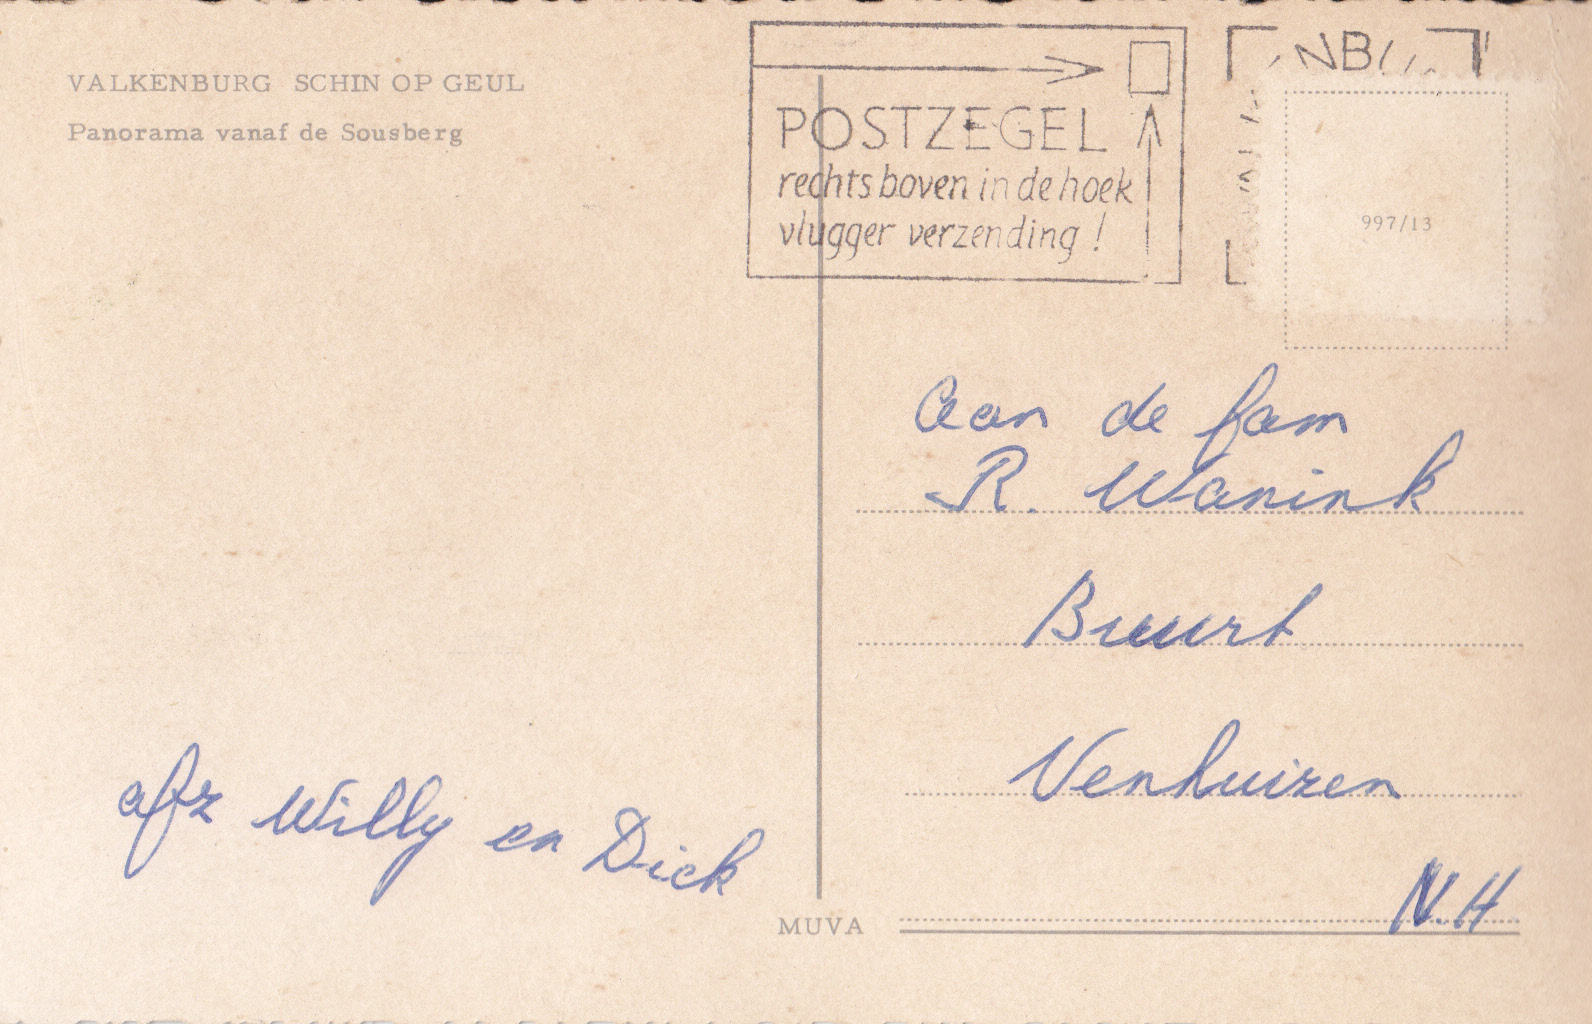 VALKENBURG SCHIN OP GEUL
Panorama vanaf de Sousberg
POSTZEGEL
rechts boven in de hoek
vlugger verzending !
997/13
Aan de fam
R. Wanink
Buurt
Venhuizen
N.H
afz Willy en Dick
MUVA